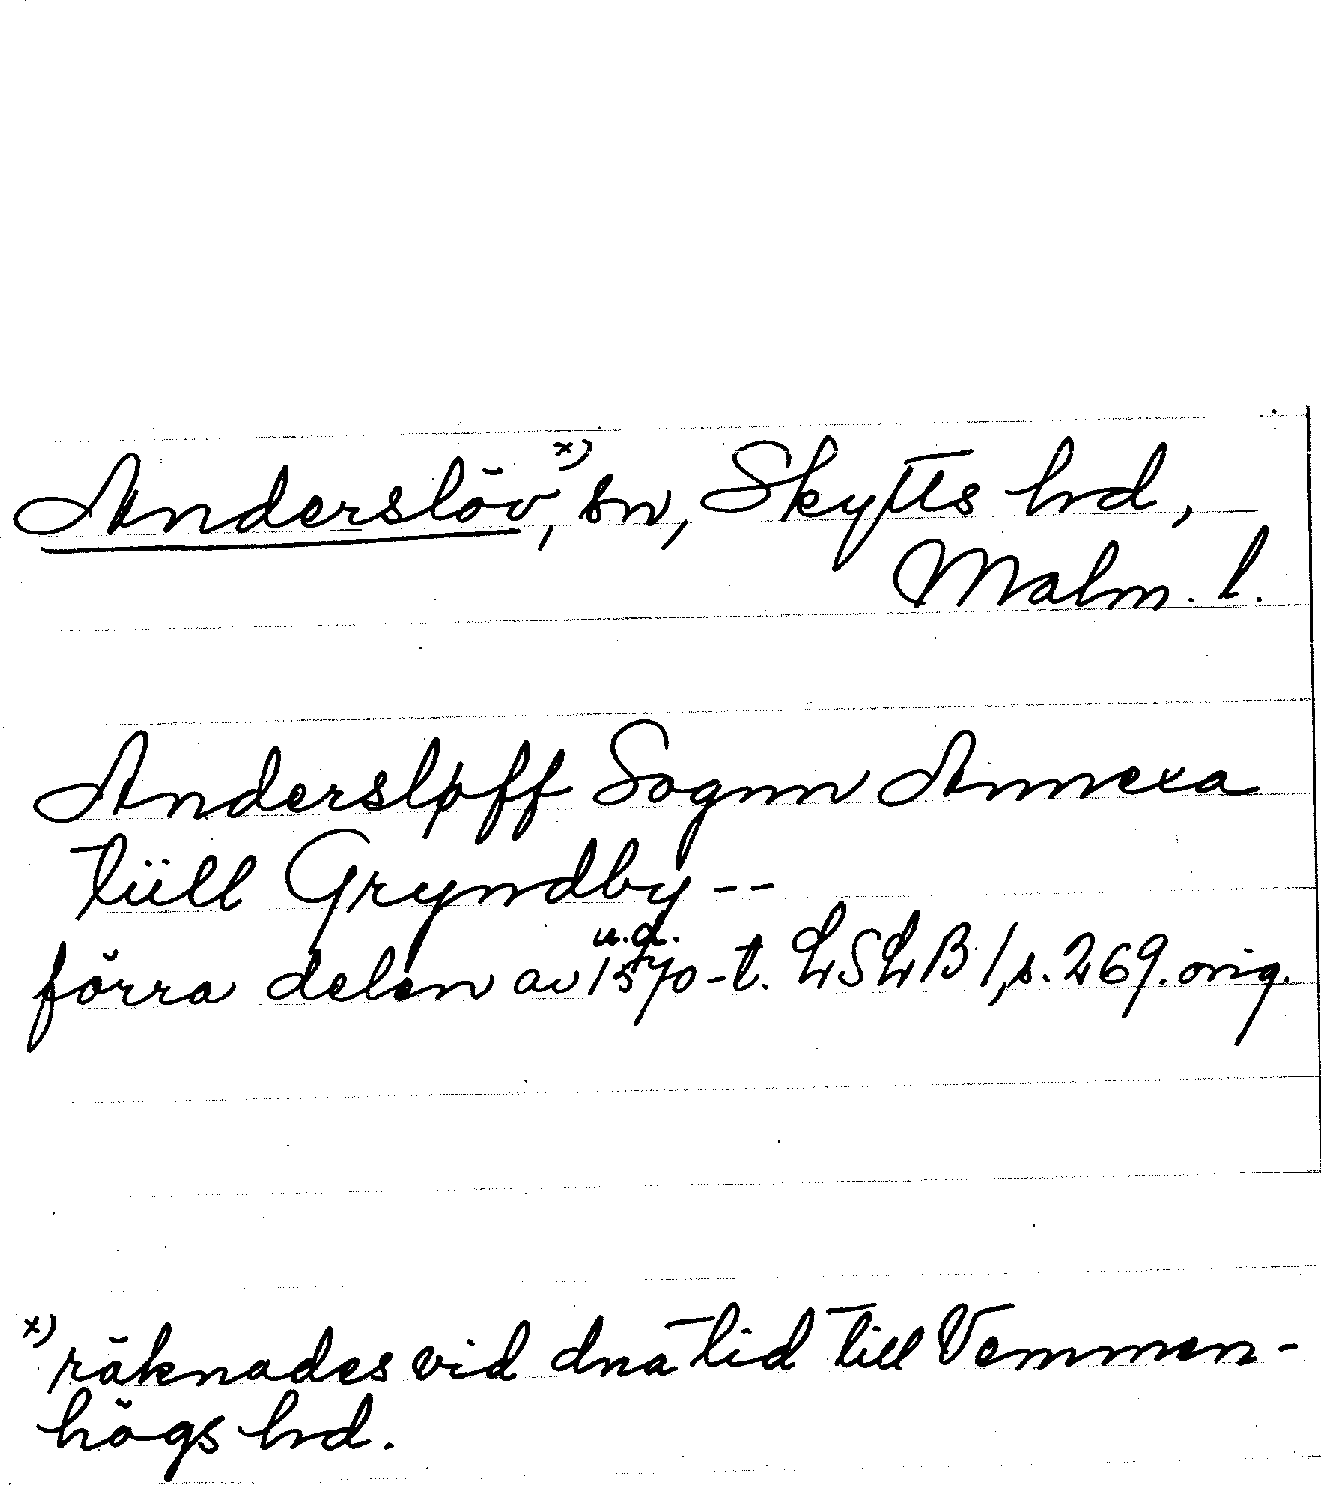 Anderslöv,ˣ⁾ sn, Skytts hd,
Malm. l.
Andersløff Sognn Annexa
tüll Gryndby --
u.a.
förra delen av 1570-t. LSLB 1, s. 269. orig.
x) räknades vid dna tid till Vemmen-
högs hd.